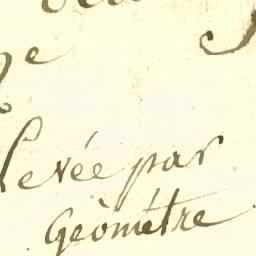 Levée par
Géométre